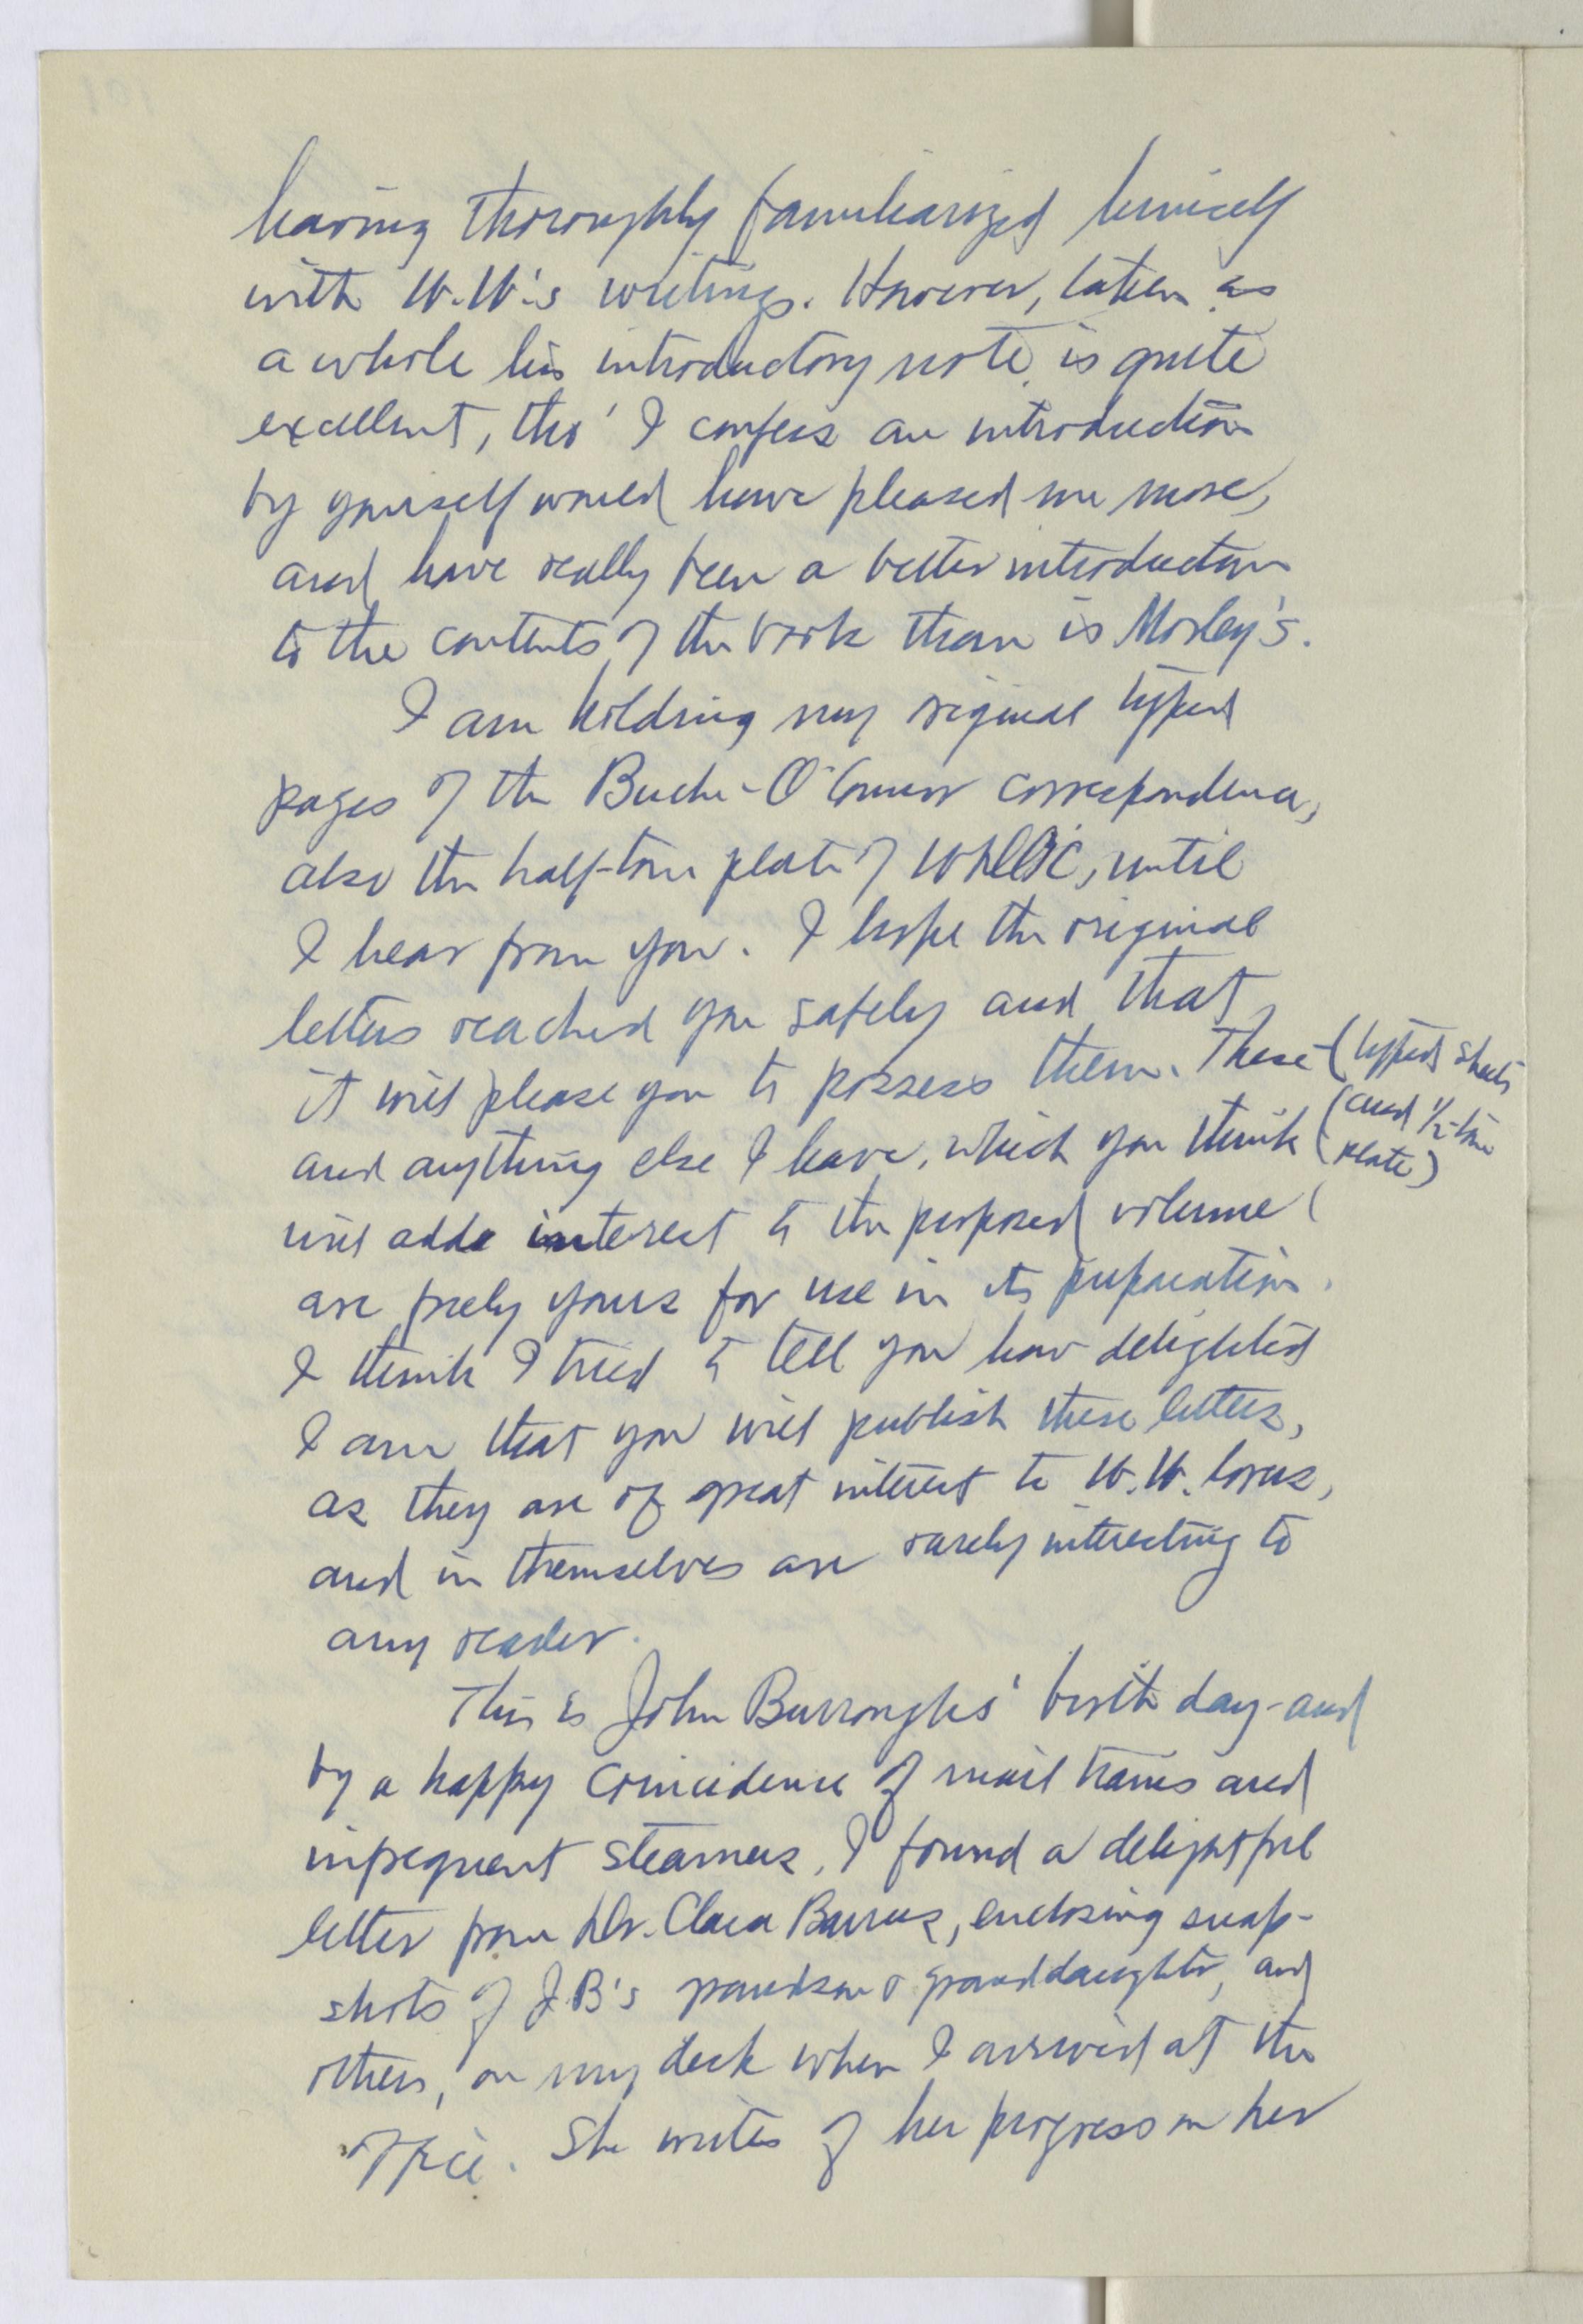 having thoroughly familiarized himself
with W.W's writings. However, taken as
a whole his introductory note is quite
excellent, tho' I confess an introduction
by yourself would have pleased me more,
and have really been a better introduction
to the contents of the book than is Morley's.
I am holding my original typed
pages of the Bucke-O'Connor correspondence,
also the half-tone plate of WDO'C, until
I hear from you. I hope the original
letters reached you safely and that
it will please you to possess them. These (typed sheets
(and 1/2-tone
plate)
and anything else I have, which you think
will add interest to the proposed volume
are freely yours for use in its preparation.
I think I tried to tell you how delighted
I am that you will publish these letters,
as they are of great interest to W.W. lovers,
and in themselves are rarely interesting to
any reader.
This is John Burroughs' birth day - and
by a happy coincidence of mail trains and
infrequent steamers, I found a delightful
letter from Dr. Clara Barrus, enclosing snap-
shots of J.B's grandson & granddaughter, and
others, on my desk when I arrived at the
office. She writes of her progress in her